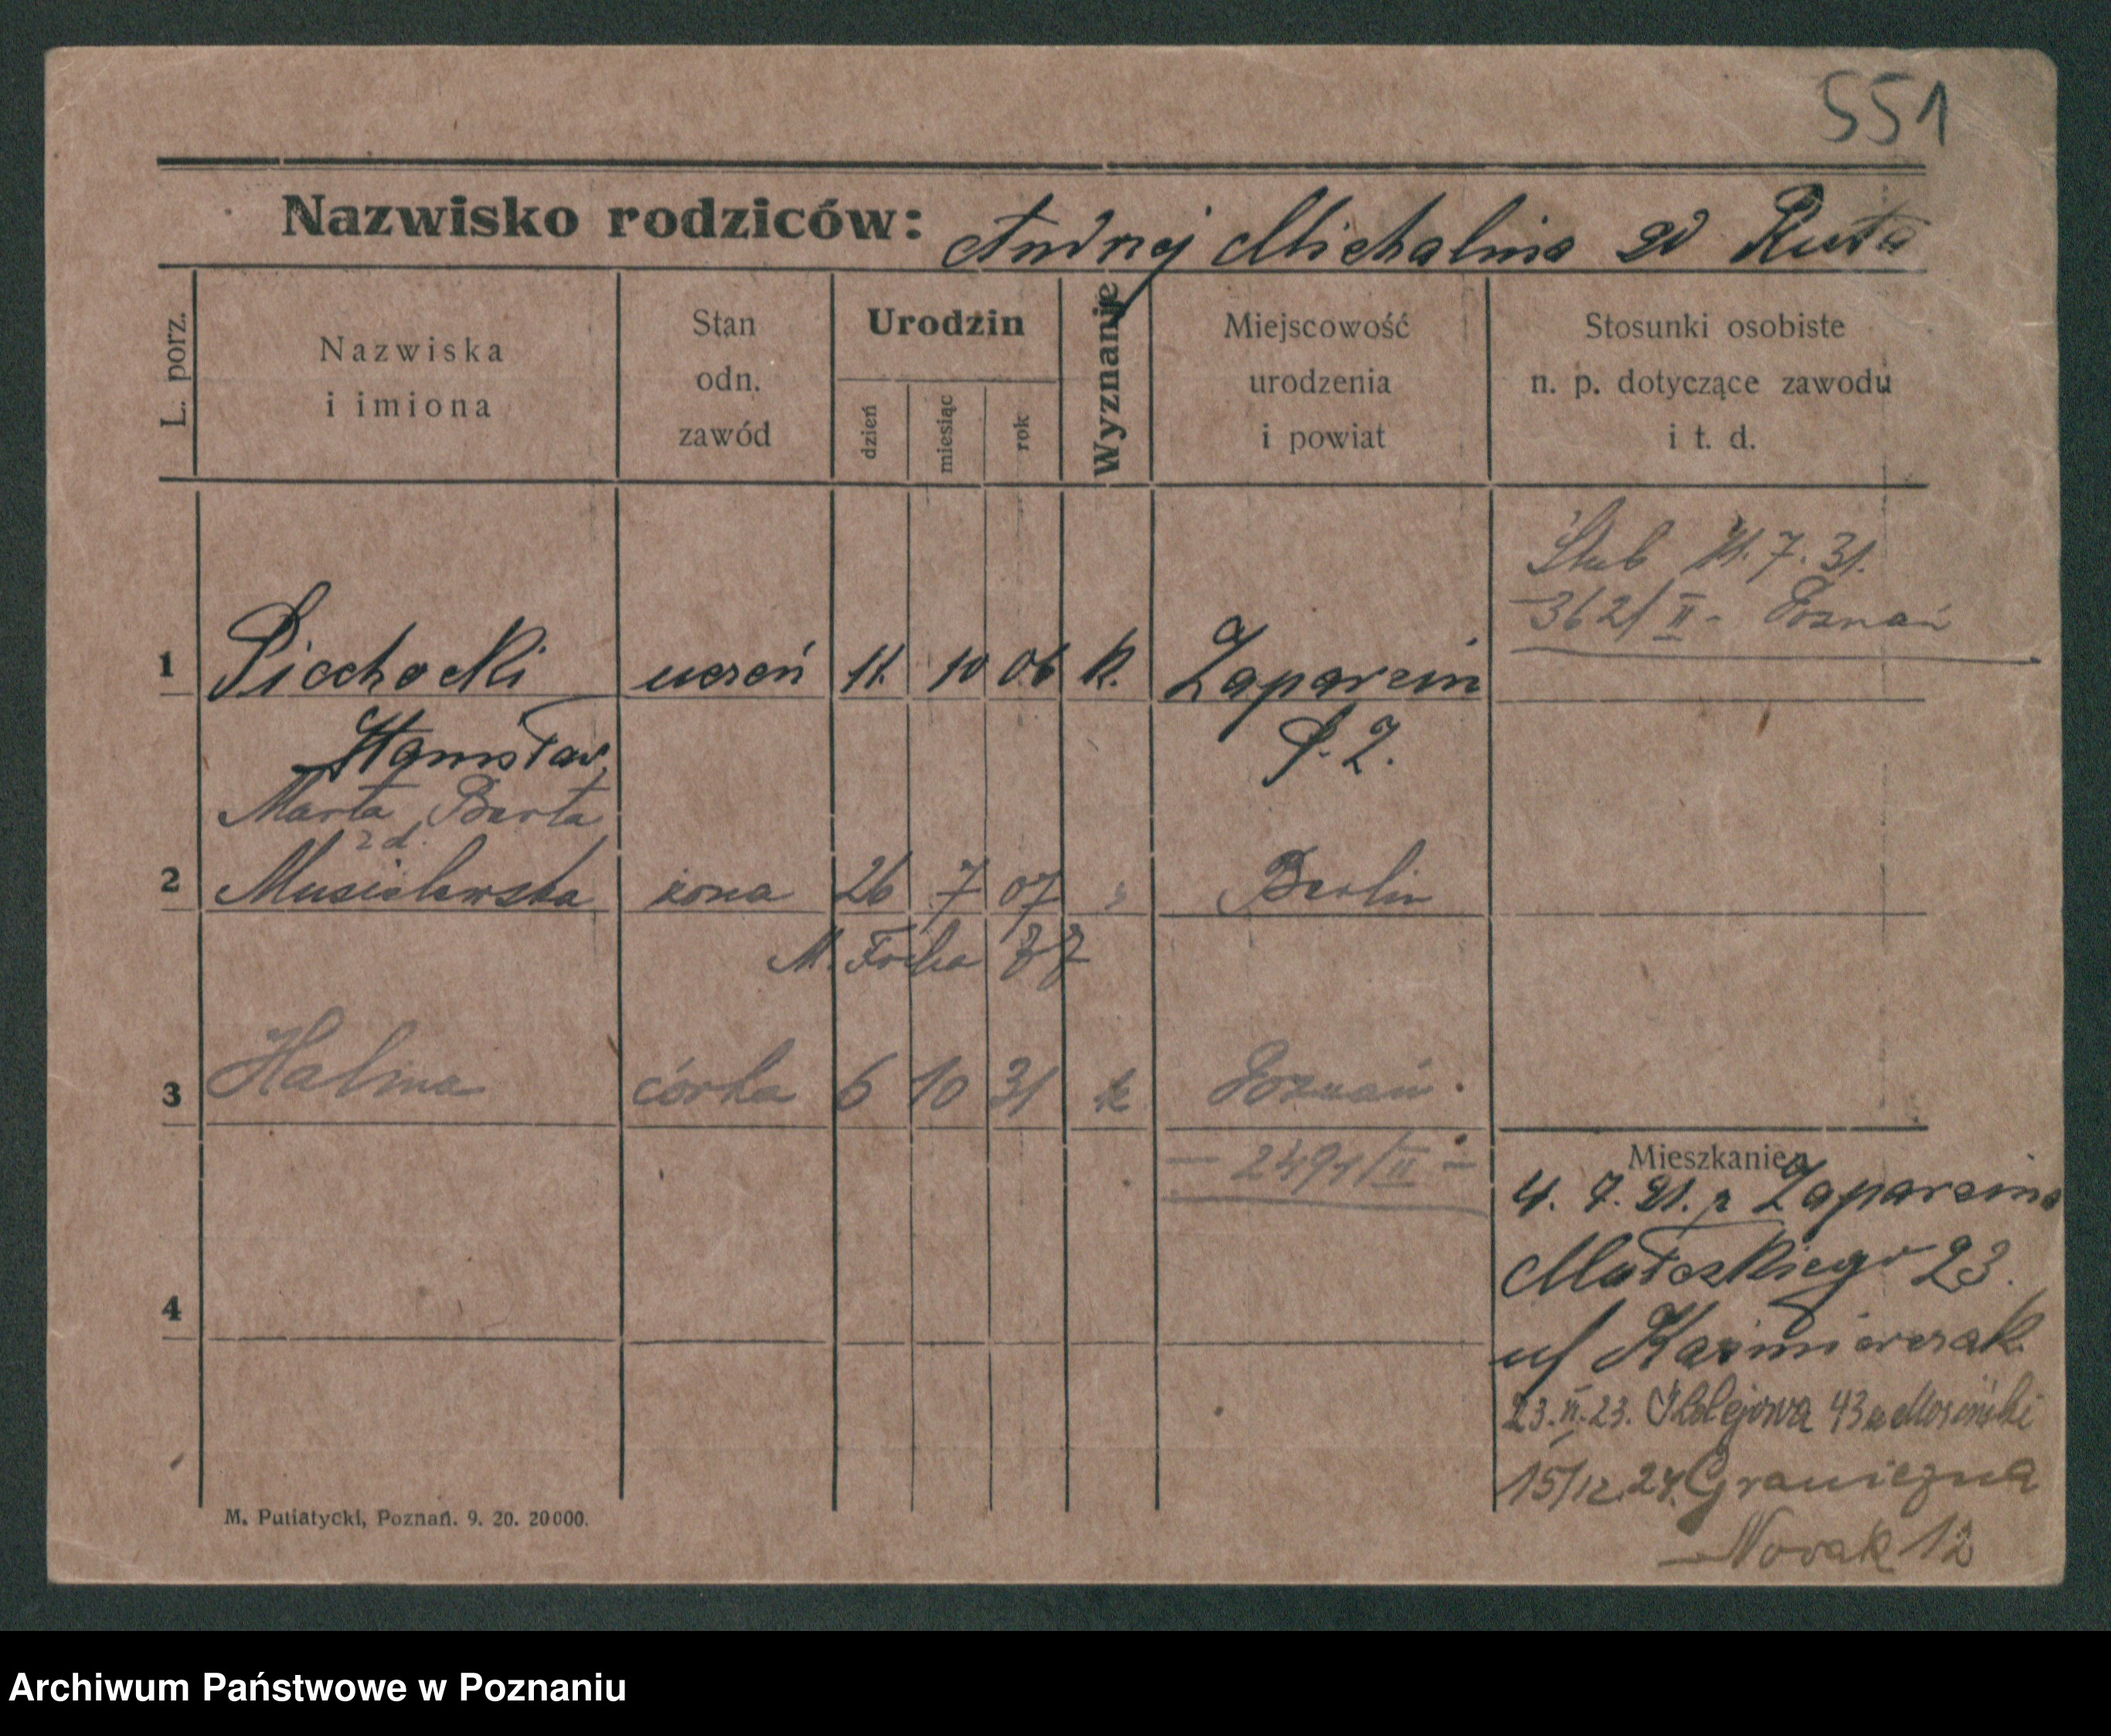 551
Nazwisko rodziców: Andrzej Michalina zd Ruta
L. porz.
Nazwiska i imiona
Stan odn. zawód
Urodzin
dzień
miesiąc
rok
Wyznanie
Miejscowość urodzenia i powiat
Stosunki osobiste n. p. dotyczące zawodu i t. d.
Ślub 7. 31.
362/II - Poznań
1 Piechocki uczeń 11. 10 06 k. Zaparcin
Stanisław
P. Z.
Marta Berta
zd.
2 Musielewska żona 26 7 07 " Berlin
M. Focha 37
3 Halina córka 6 10 31 k Poznań
— 2491/II —
Mieszkanie
4. 7. 21. z Zaparcina
Małeckiego 23.
u/ Kazimierczak
23. II. 23. Kolejowa 43 u Mosiński
4
15/12. 24. Graniczna
Nowak 12
M. Putiatycki, Poznań. 9. 20. 20000.
Archiwum Państwowe w Poznaniu